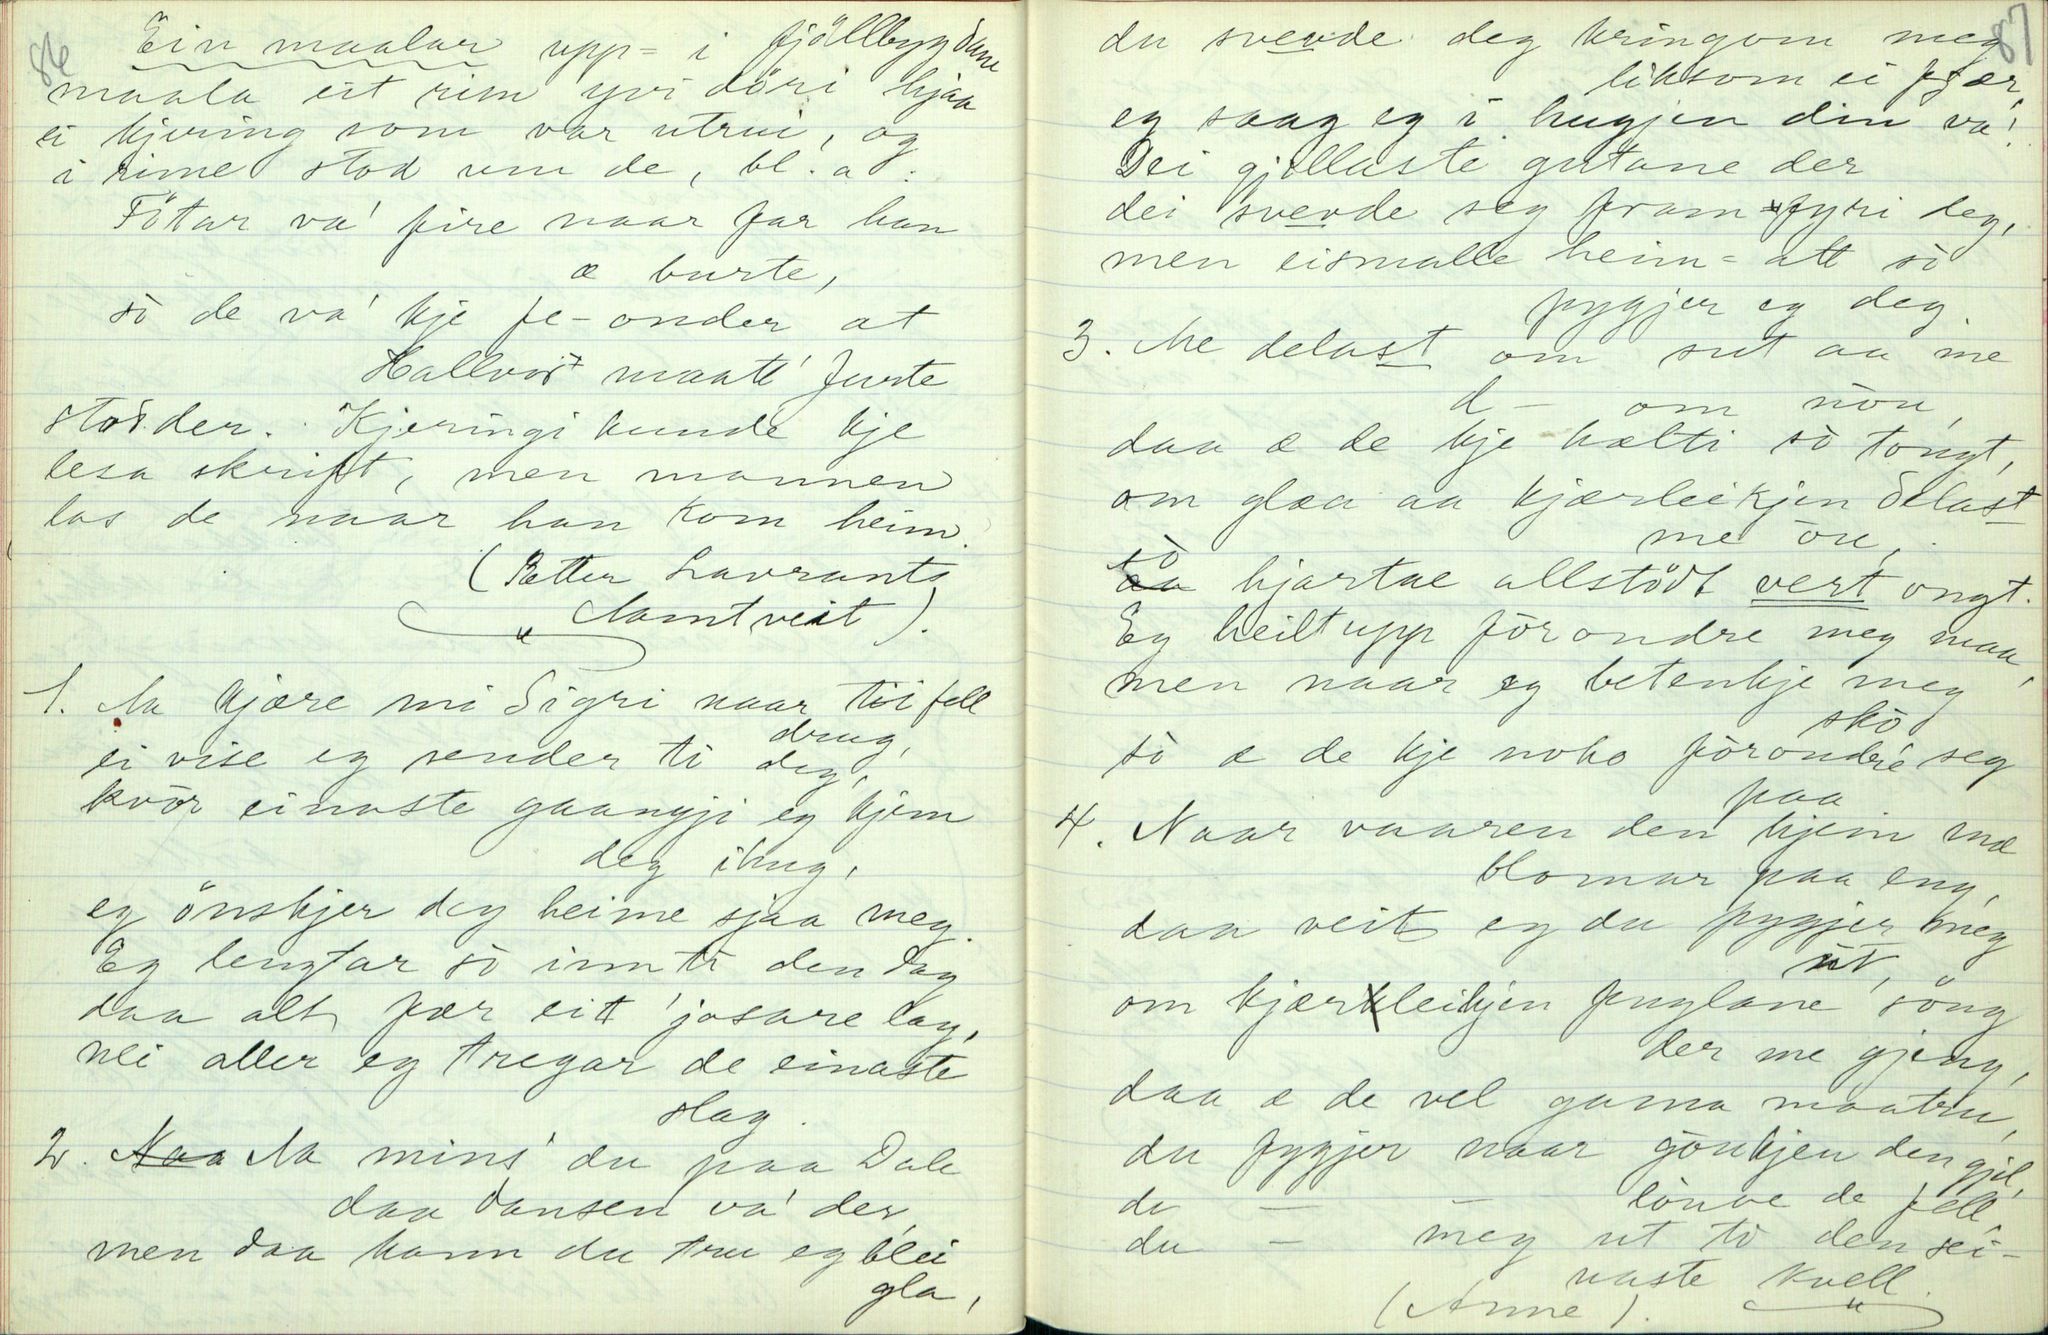 86
Ein maalar upp-i fjöllbygdane
maala eit rim yvi döri hjaa
ei kjering som var utrui, og
i rime stod um de, bl. a.:
Fötar va' fire naar far han
æ burte,
sò de va' kje fe-onder at
Hallvor maatt' furte
stod der. Kjeringi kunde kje
lesa skrift, men mannen
las de naar han kom heim.
(Petter Lavrants
Mamtveit).
1. Aa kjære mi Sigri naar ti fell
drug,
ei vise eg sender ti deg,
kvòr einaste gaangji eg kjem
deg ihug,
eg önskjer deg heime sjaa meg.
Eg lengtar sò inn ti den dag
daa alt fær eit ljosare lag,
nei aller eg tregar de einaste
slag.
2. Aa mins' du paa Dale
daa dansen va' der,
men daa kann du tru eg blei
gla,
87
du svevde deg kringom meg
liksom ei fjær,
eg saag eg i hugjen din va'.
Dei gjillaste gutane der
dei svevde seg fram fyri deg,
men eismalle heim-att sò
fygjer eg deg.
3. Me delast om sut aa me
d — om nòu,
daa æ de kje hælti sò tongt,
om glæa aa kjærleikjen delast
me òu,
sò hjartae allstödt vert ongt.
Eg heilt upp fòrondre meg maa,
men naar eg betenkje meg
skò
sò æ de kje noko fòrondre seg
paa
4. Naar vaaren den kjem mæ
blomar paa eng,
daa veit eg du fygjer meg
ut,
om kjærleikjen fuglane söng
der me gjeng,
daa æ de vel gama maatru,
du fygjer naar gòukjen den gjel,
du — lòuve de fell
du — meg ut ti den sei-
naste kvell.
(Anne).